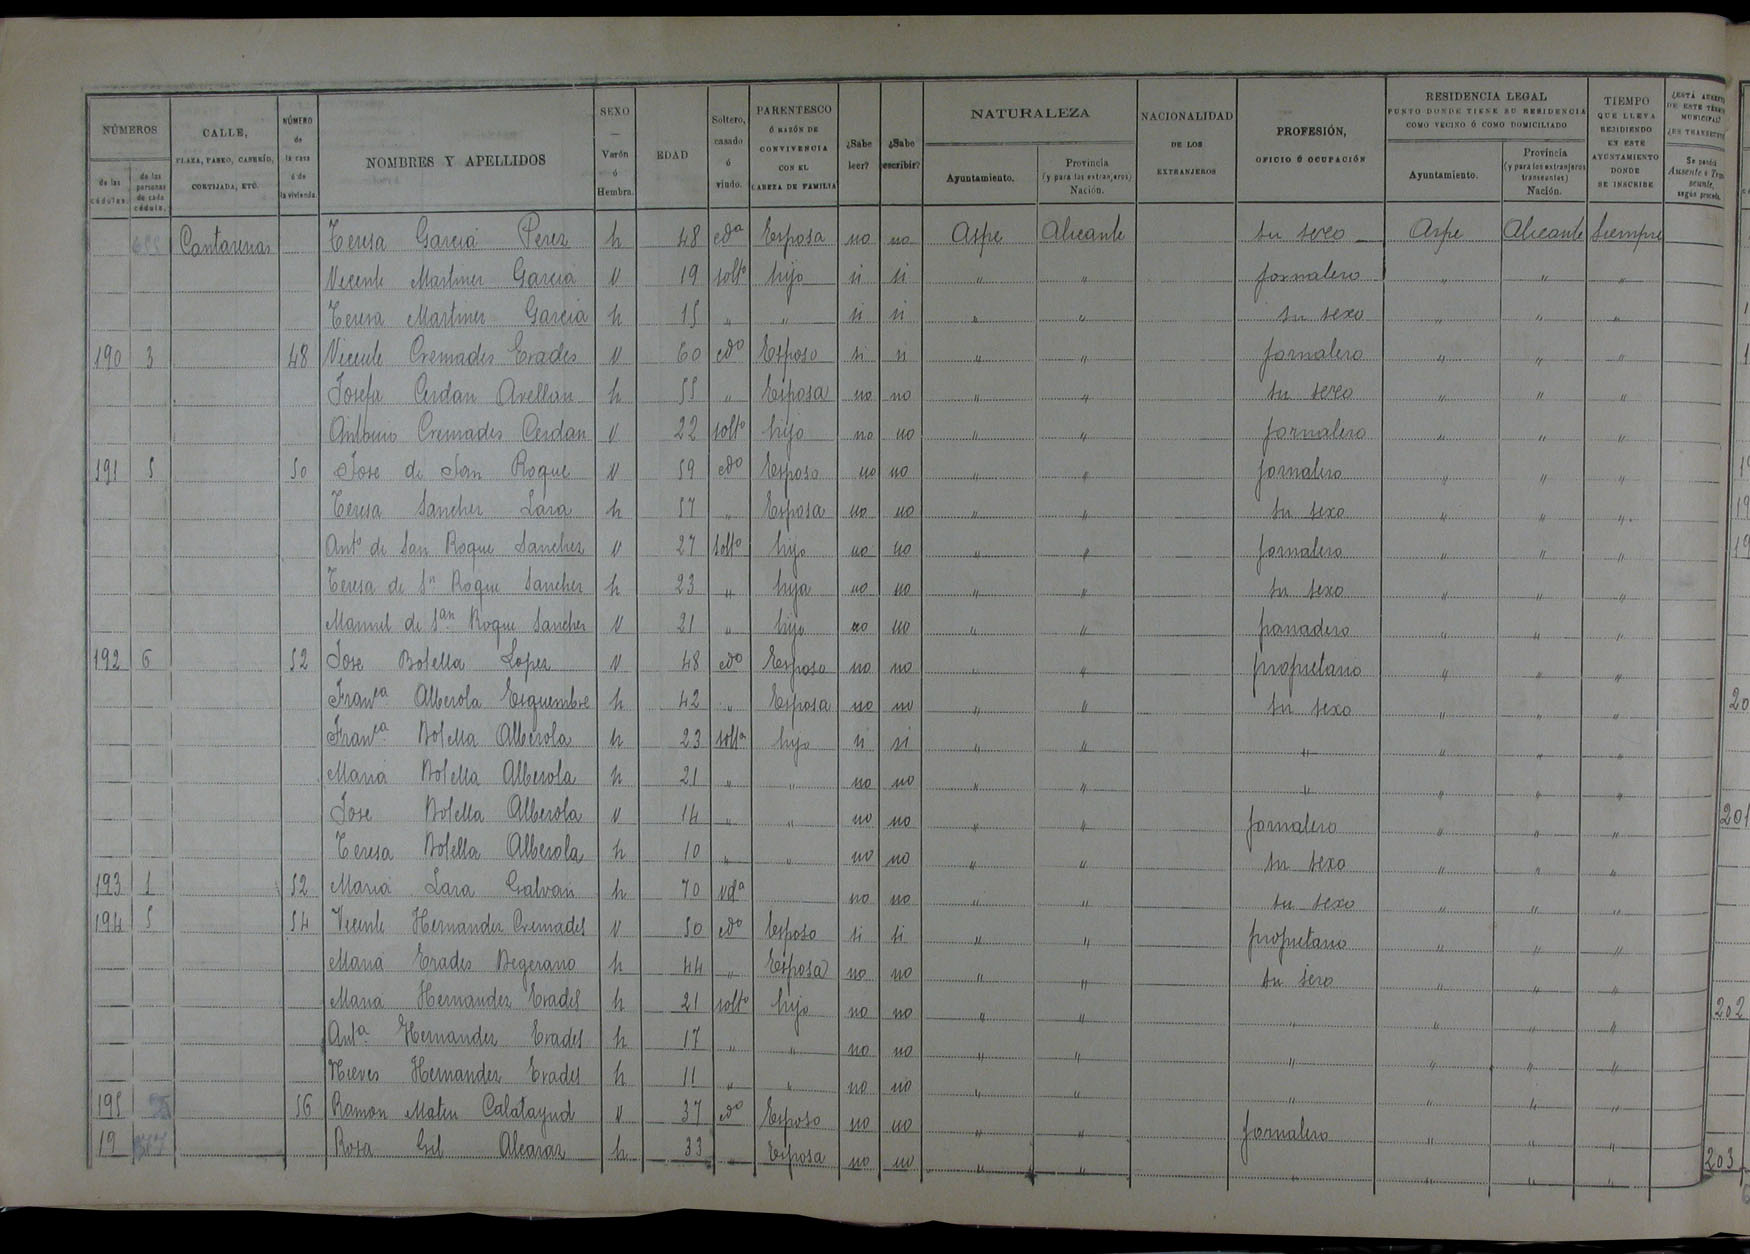 NÚMEROS
de las cédulas.
de las personas de cada cédula.
CALLE,
PLAZA, PASEO, CASERÍO,
CORTIJADA, ETC.
NÚMERO
de
la casa
ó de
la vivienda
NOMBRES Y APELLIDOS
SEXO
—
Varón
ó
Hembra.
EDAD
Soltero,
casado
ó
viudo.
PARENTESCO
Ó RAZÓN DE
CONVIVENCIA
CON EL
CABEZA DE FAMILIA
¿Sabe
leer?
¿Sabe
escribir?
NATURALEZA
Ayuntamiento.
Provincia
(y para los extranjeros)
Nación.
NACIONALIDAD
DE LOS
EXTRANJEROS
PROFESIÓN,
OFICIO Ú OCUPACIÓN
RESIDENCIA LEGAL
PUNTO DONDE TIENE SU RESIDENCIA
COMO VECINO Ó COMO DOMICILIADO
Ayuntamiento.
Provincia
(y para los extranjeros
transeuntes)
Nación.
TIEMPO
QUE LLEVA
RESIDIENDO
EN ESTE
AYUNTAMIENTO
DONDE
SE INSCRIBE
Cantarerias Teresa Garcia Perez h 48 cdª Esposa no no Aspe Alicante su sexo Aspe Alicante Siempre
Vicente Martinez Garcia V 19 soltº hijo si si " " jornalero " " "
Teresa Martinez Garcia h 15 " " si si " " su sexo " " "
190 3 48 Vicente Cremades Erades V 60 cdº Esposo si si " " jornalero " " "
Josefa Cerdan Avellan h 55 " Esposa no no " " su sexo " " "
Antonio Cremades Cerdan V 22 soltº hijo no no " " jornalero " " "
191 5 50 Jose de San Roque V 59 cdº Esposo no no " " jornalero " " "
Teresa Sanchez Lara h 57 " Esposa no no " " su sexo " " "
Antº de San Roque Sanchez V 27 soltº hijo no no " " jornalero " " "
Teresa de Sn Roque Sanchez h 23 " hija no no " " su sexo " " "
Manuel de San Roque Sanchez V 21 " hijo no no " " panadero " " "
192 6 52 Jose Botella Lopez V 48 cdº Esposo no no " " propietario " " "
Franca Alberola Esquembre h 42 " Esposa no no " " su sexo " " "
Franca Botella Alberola h 23 soltª hija si si " " " " " "
Maria Botella Alberola h 21 " " no no " " " " " "
Jose Botella Alberola V 14 " " no no " " jornalero " " "
Teresa Botella Alberola h 10 " " no no " " su sexo " " "
193 1 52 Maria Lara Galvan h 70 vdª no no " " su sexo " " "
194 5 54 Vicente Hernandez Cremades V 50 cdº Esposo si si " " propietario " " "
Maria Erades Begerano h 44 " Esposa no no " " su sexo " " "
Maria Hernandez Erades h 21 soltº hijo no no " " " " " "
Antª Hernandez Erades h 17 " " no no " " " " " "
Nieves Hernandez Erades h 11 " " no no " " " " " "
195 56 Ramon Mateu Calatayud V 37 cdº Esposo no no " " jornalero " " "
19 Rosa Gil Alcaraz h 33 " Esposa no no " " " " " "
20
201
202
203